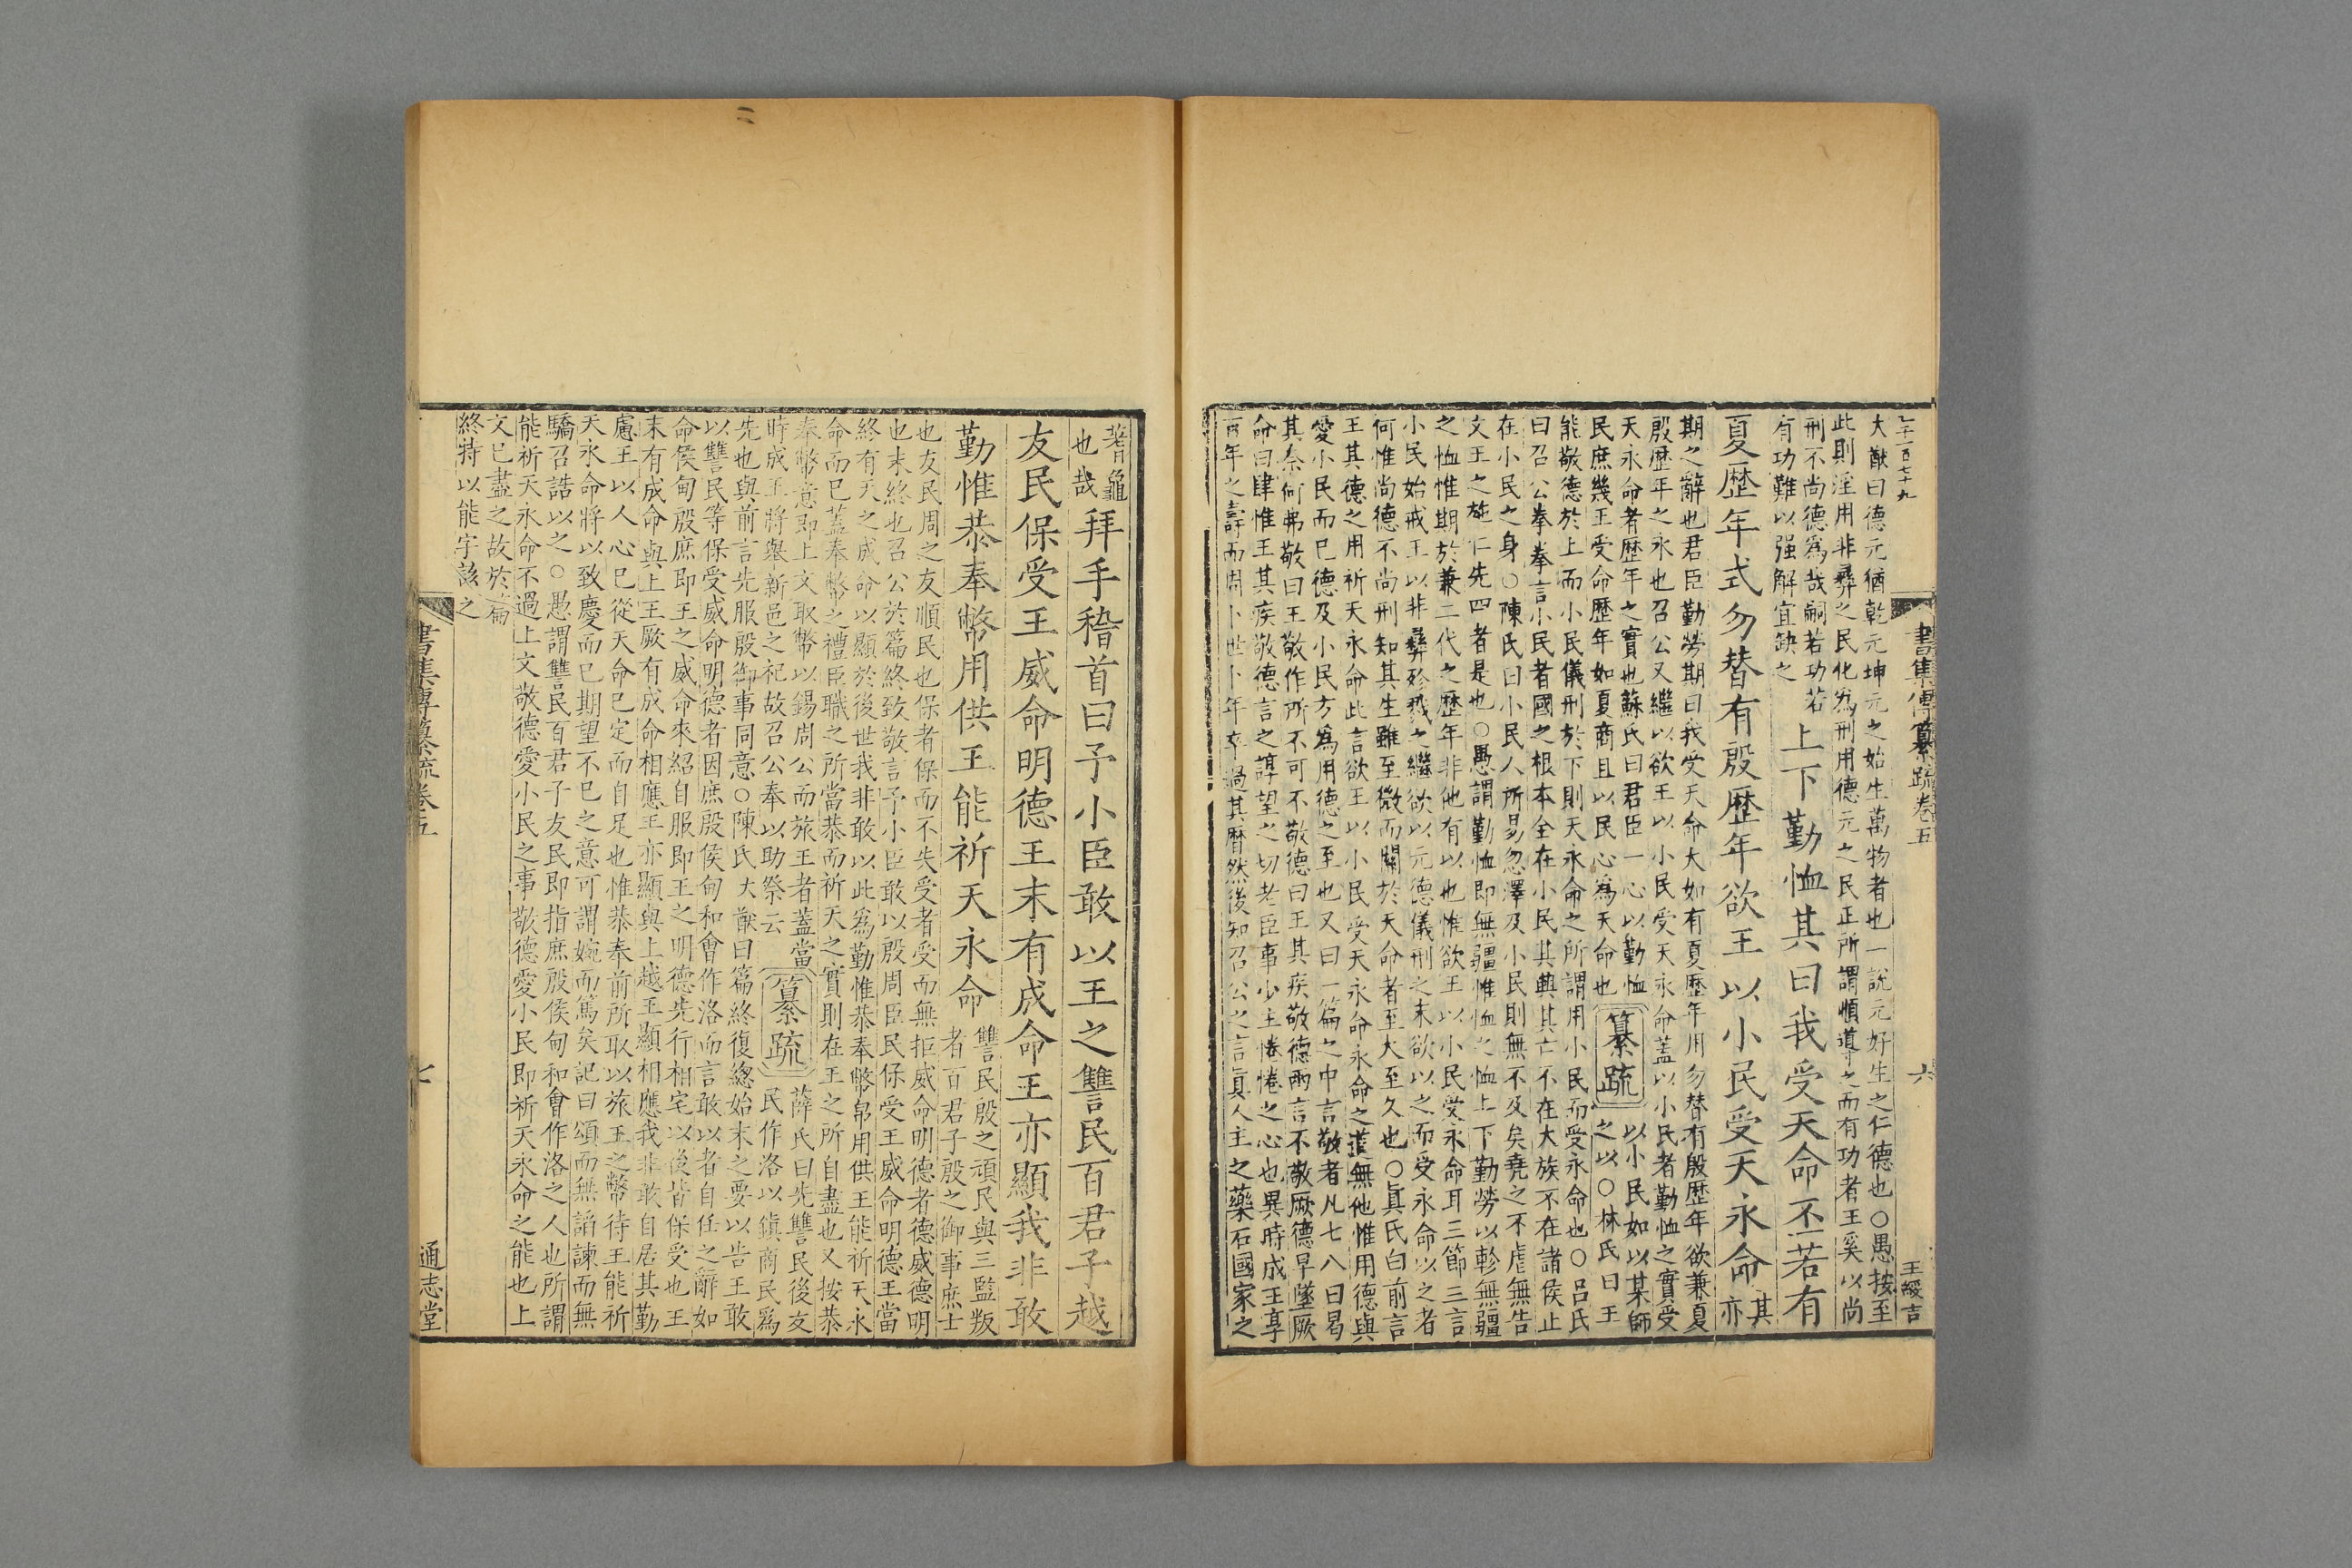 乙千一百七十九
書集傳纂疏卷五
六
王綬吉
大猷曰德元猶乾元坤元之始生萬物者也一說元好生之仁德也○愚按至
此則淫用非彝之民化為刑用德元之民正所謂順導之而有功者王奚以尚
刑不尚德爲哉嗣若功若
有功難以强解宜缺之
上下勤恤其曰我受天命丕若有
夏歷年式勿替有殷歷年欲王以小民受天永命
其
亦
期之辭也君臣勤勞期曰我受天命大如有夏歷年用勿替有殷歷年欲兼夏
殷歷年之永也召公又繼以欲王以小民受天永命蓋以小民者勤恤之實受
天永命者歷年之實也蘇氏曰君臣一心以勤恤
民庶幾王受命歷年如夏商且以民心爲天命也
纂疏
以小民如以某師
之以○林氏曰王
能敬德於上而小民儀刑於下則天永命之所謂用小民而受永命也○呂氏
曰召公拳拳言小民者國之根本全在小民其興其亡不在大族不在諸侯止
在小民之身○陳氏曰小民人所易忽澤及小民則無不及矣堯之不虐無告
文王之施仁先四者是也○愚謂勤恤即無疆惟恤之恤上下勤勞以軫無疆
之恤惟期於兼二代之歷年非他有以也惟欲王以小民受永命耳三節三言
小民始戒王以非彝殄戮之繼欲以元德儀刑之末欲以之而受永命以之者
何惟尚德不尚刑知其生雖至微而關於天命者至大至久也○眞氏曰前言
王其德之用祈天永命此言欲王以小民受天永命永命之道無他惟用德與
愛小民而已德及小民方爲用德之至也又曰一篇之中言敬者凡七八曰曷
其奈何弗敬曰王敬作所不可不敬德曰王其疾敬德兩言不敬厥德早墜厥
命曰肆惟王其疾敬德言之諄望之切老臣事少主惓惓之心也異時成王享
百年之壽而周卜世卜年卒過其曆然後知召公之言眞人主之藥石國家之
蓍龜
也哉
拜手稽首曰予小臣敢以王之讐民百君子越
友民保受王威命明德王末有成命王亦顯我非敢
勤惟恭奉幣用供王能祈天永命
讐民殷之頑民與三監叛
者百君子殷之御事庶士
也友民周之友順民也保者保而不失受者受而無拒威命明德者德威德明
也末終也召公於篇終致敬言予小臣敢以殷周臣民保受王威命明德王當
終有天之成命以顯於後世我非敢以此爲勤惟恭奉幣帛用供王能祈天永
命而已蓋奉幣之禮臣職之所當恭而祈天之實則在王之所自盡也又按恭
奉幣意即上文取幣以錫周公而旅王者蓋當
時成王將舉新邑之祀故召公奉以助祭云
纂疏
薛氏曰先讐民後友
民作洛以鎭商民爲
先也與前言先服殷御事同意○陳氏大猷曰篇終復總始末之要以告王敢
以讐民等保受威命明德者因庶殷侯甸和會作洛而言敢以者自任之辭如
命侯甸殷庶即王之威命來紹自服即王之明德先行相宅以後皆保受也王
末有成命與上王厥有成命相應王亦顯與上越王顯相應我非敢自居其勤
慮王以人心已從天命已定而自足也惟恭奉前所取以旅王之幣待王能祈
天永命將以致慶而已期望不已之意可謂婉而篤矣記曰頌而無諂諫而無
驕召誥以之○愚謂讐民百君子友民即指庶殷侯甸和會作洛之人也所謂
能祈天永命不過上文敬德愛小民之事敬德愛小民即祈天永命之能也上
文已盡之故於篇
終特以能字該之
書集傳纂疏卷五
七
通志堂